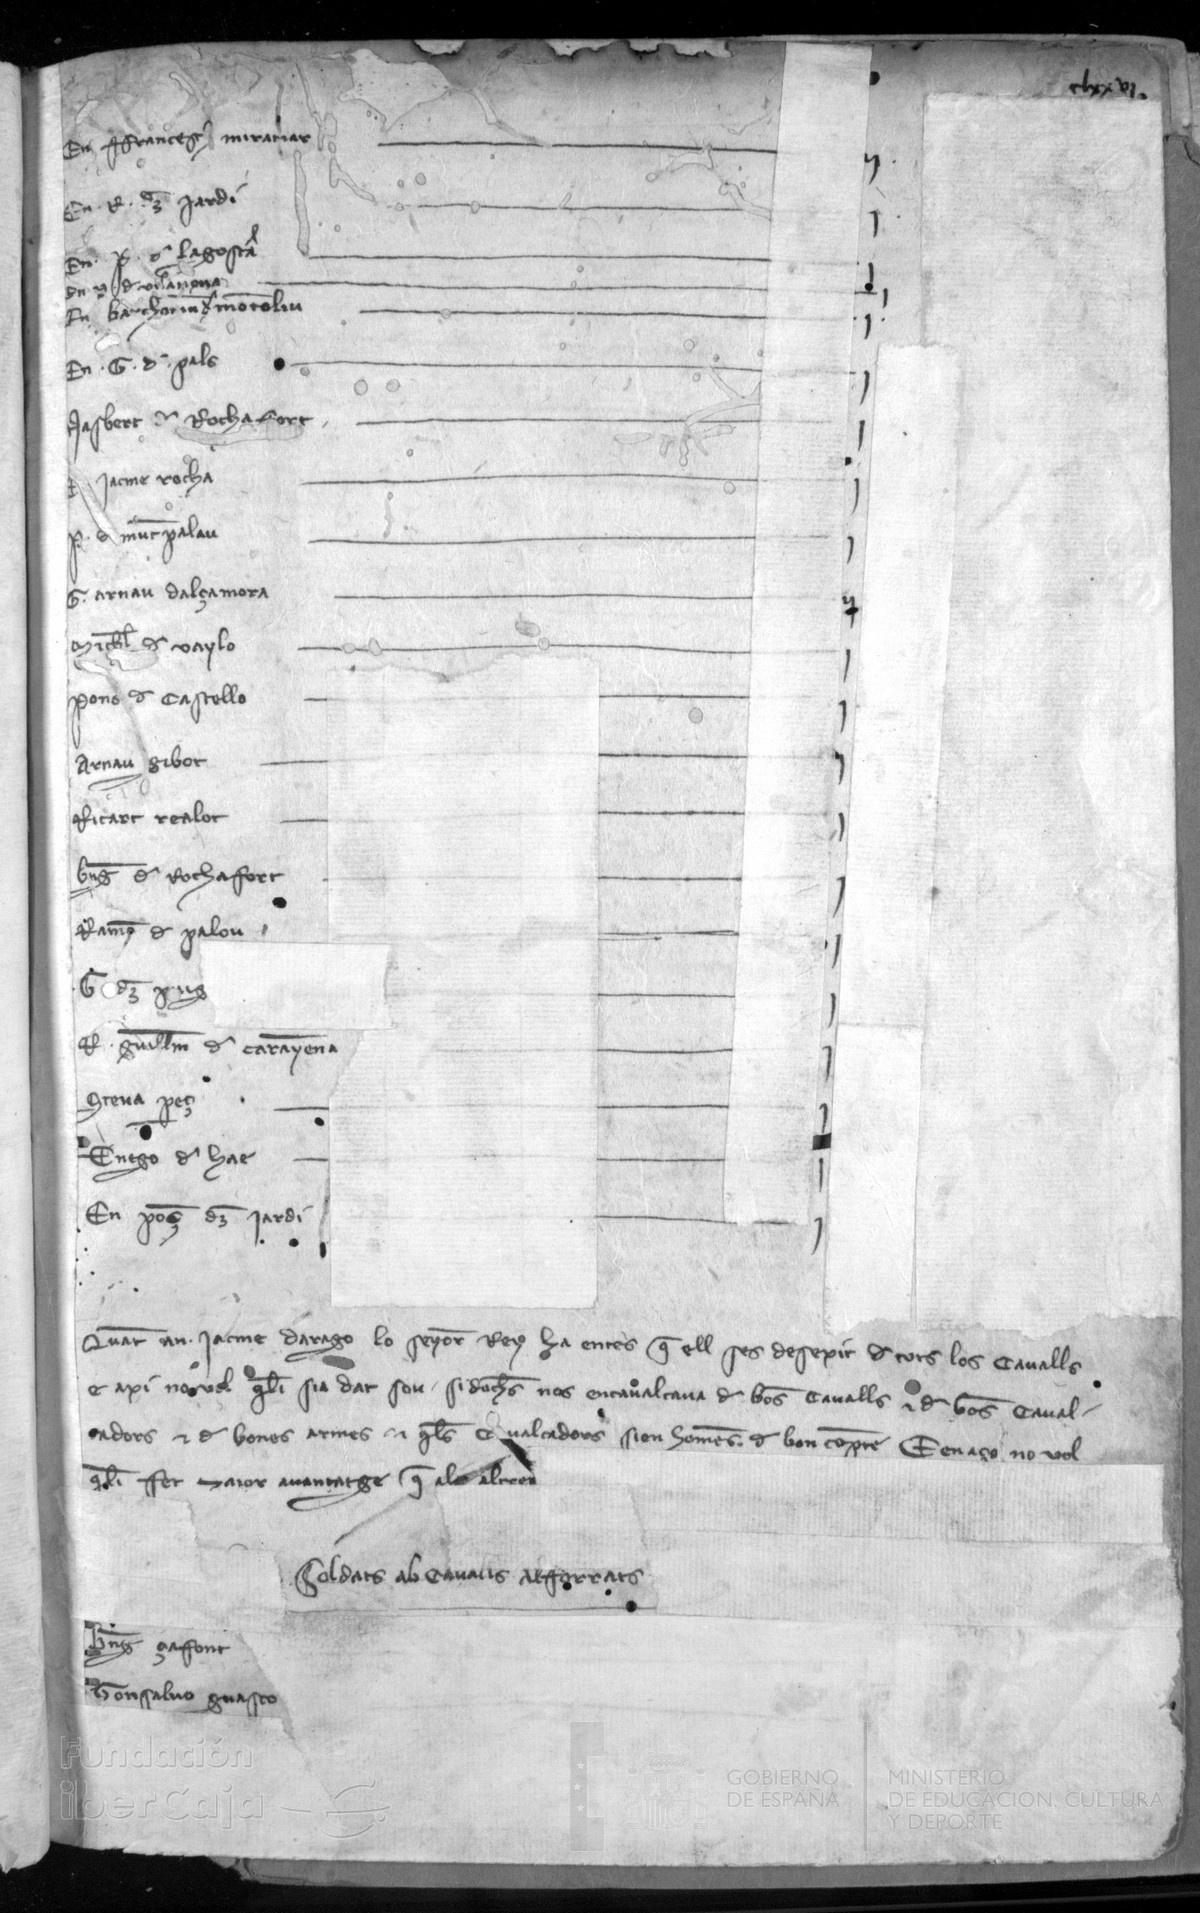 clxxvi.
En ffrancesch miramar ij
En. R. dz jardi j
En. P. d lagostal j
En G d vilanoua j
En barthomeu d montoliu j
En. G. d pals j
Jasbert d Rochafort j
E jacme rocha j
P. d muntpalau j
G. arnau dalçamora ij
Michl d vaylo j
Pons d Castello j
Arnau gibot j
Ricart realot j
bng d Rochaffort j
Ramon d palou j
G dz pug j
R. guillm d carayena j
Steua peç j
Enego d hae j
En poç dz jardi j
Quant an. Jacme darago lo seyor Rey ha entes q ell ses desexit d tots los Caualls
e axi no vol qli sia dat sou. si dochs nos encaualcaua d bos Caualls & d bos Caual-
cadors & d bones armes & qls Caualcadors sien homes. d bon compte E en aço no vol
qli ffer maior auantatge q als altres
Soldats ab Caualls alforrats
Bng çaffont
Gonsaluo guasco
Fundación
iberCaja
GOBIERNO
DE ESPAÑA
MINISTERIO
DE EDUCACIÓN, CULTURA
Y DEPORTE